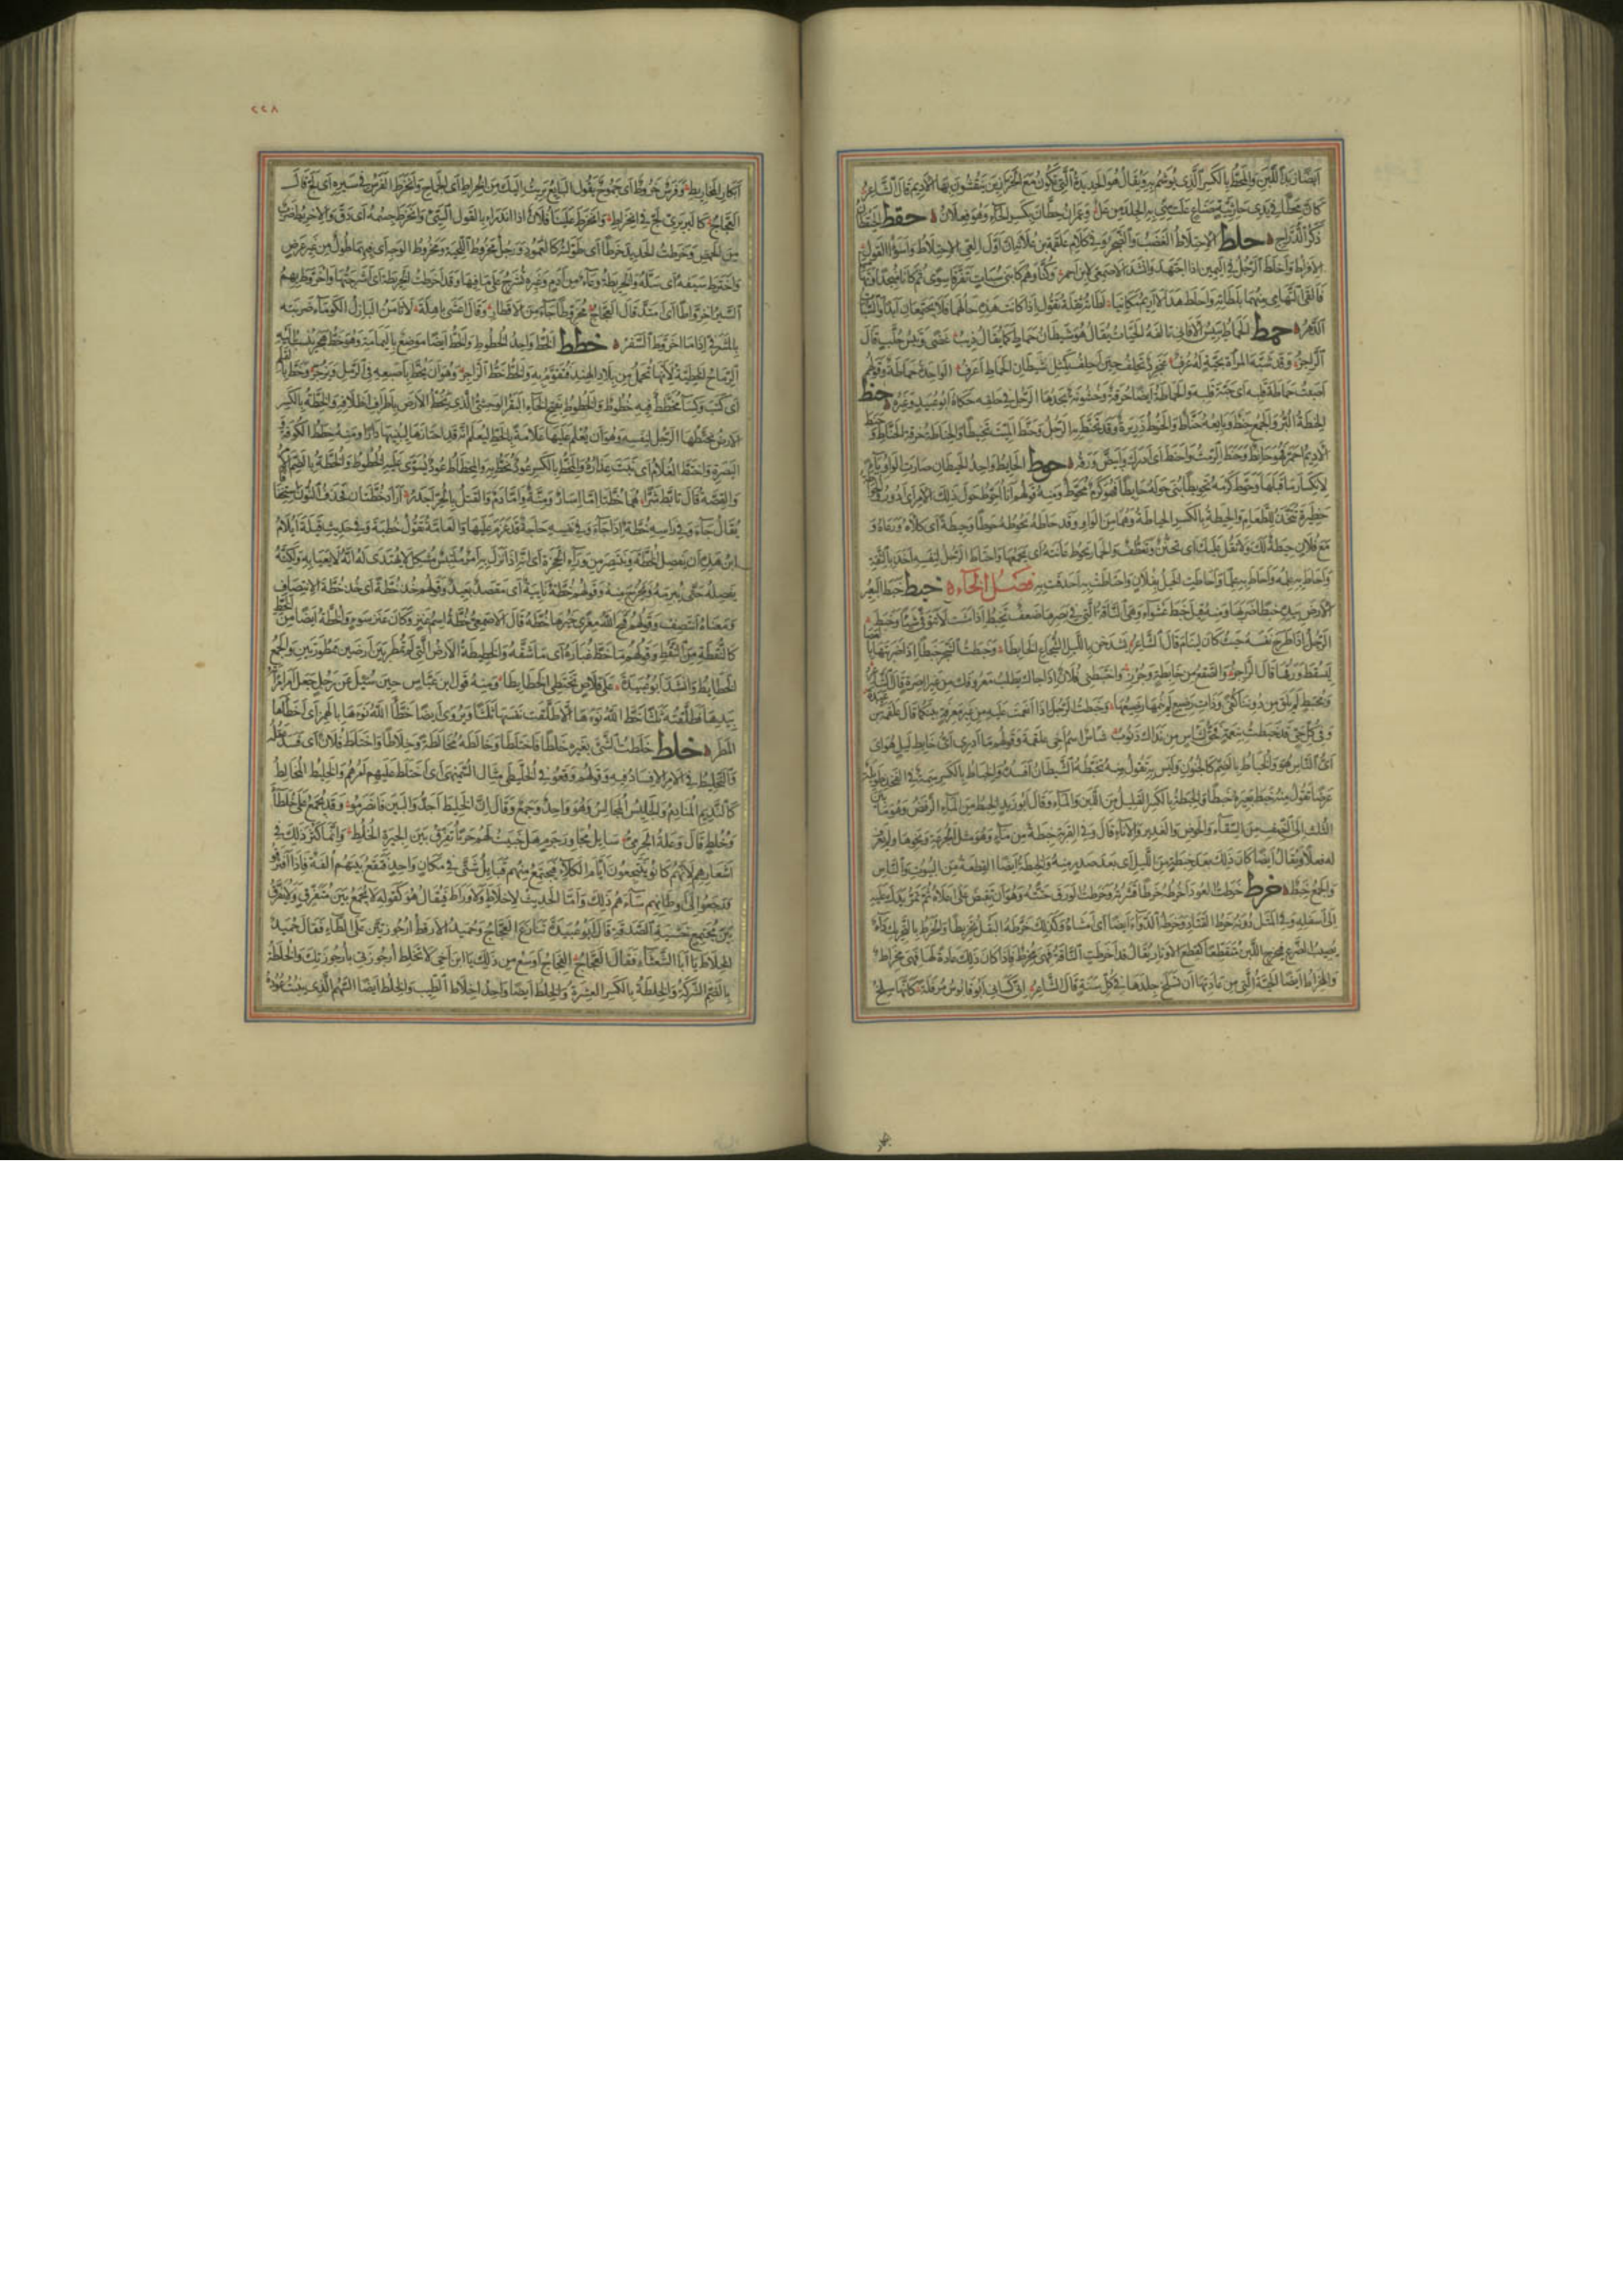 أيضا زبد اللبن والمحط بالكسر الذي يوشم به ويقال هو الحديدة التي تكون مع الخرازين ينقشون بها الأديم قال الشاعر
كأن محطا في يدي حارثية صناع علت مني به الجلد من عل وعمران بن حطان بكسر الحاء وهو فعلان حقط الحيقطان
ذكر الدراج حلط الاحتلاط الغضب والضجر وفي كلام علقمة بن علاثة أول العي الاحتلاط وأسوأ القول
الإفراط وأحلط الرجل في اليمين إذا اجتهد وأنشد الأصمعي لابن أحمر وكنا وهم كابني سبات تفرقا سوى ثم كانا منجدا وتهاميا
فألقى التهامي منهما بلطاته وأحلط هذا لا أريم مكانيا لطاته ثقله يقول إذا كانت هذه حالهما فلا يجتمعان أبدا والسبات
الدهر حمط الحماط يبيس الأفاني تألفه الحيات يقال هو شيطان حماط كما يقال ذئب غضى وتيس حلب قال
الراجز وقد شبه المرأة بحية له عرف عنجرد تحلف حين أحلف كمثل شيطان الحماط أعرف الواحدة حماطة وقولهم
أصبت حماطة قلبه أي حبة قلبه والحماطة أيضا حرقة وخشونة يجدها الرجل في حلقه حكاه أبو عبيد وغيره حنط
الحنطة البر والجمع حنط وبائعه حناط والحنوط ذريرة وقد تحنط به الرجل وحنط الميت تحنيطا والحناطة حرفة الحناط وحنط
الأديم احمر فهو حانط وحنط الرمث وأحنط أي أدرك وابيض ورقه حوط الحائط واحد الحيطان صارت الواو ياء
لانكسار ما قبلها وحوط كرمه تحويطا بنى حوله حائطا فهو كرم محوط ومنه قولهم أنا أحوط حول ذلك الأمر أي أدور
حظيرة تتخذ للطعام والحيطة بالكسر الحياطة وهما من الواو وقد حاطه يحوطه حوطا وحيطة أي كلأه ورعاه و
مع فلان حيطة لك ولا تقل عليك أي تحنن وتعطف والحمار يحوط عانته أي يجمعها واحتاط الرجل لنفسه أخذ بالثقة
وأحاط به علمه وأحاط به علما وأحاطت الخيل بفلان واحتاطت به أحدقت به فصل الخاء خبط خبط البعير
الأرض بيده خبطا ضربها ومنه قيل خبط عشواء وهي الناقة التي في بصرها ضعف تخبط إذا مشت لا تتوقى شيئا وخبط
الرجل إذا طرح نفسه حيث كان لينام قال الشاعر يشدخن بالليل الشجاع الخابطا وخبطت الشجر خبطا إذا ضربتها بالعصا
ليسقط ورقها قال الراجز والصقع من خابطة وجرز واختبطني فلان إذا جاءك يطلب معروفك من غير آصرة قال الشاعر
ومختبط لم يلق من دوننا كفى وذات رضيع لم ينمها رضيعها وخبطت الرجل إذا أنعمت عليه من غير معرفة بينكما قال علقمة بن عبدة
وفي كل حي قد خبطت بنعمة فحق لشأس من نداك ذنوب شأس اسم أخي علقمة وقولهم ما أدري أي خابط ليل هو أي
أي الناس هو والخباط بالضم كالجنون وليس به تقول منه تخبطه الشيطان أي أفسده والخباط بالكسر سمة في الفخذ طويلة
عرضا تقول منه خبط بعيره خبطا والخبطة بالكسر القليل من اللبن والماء وقال أبو زيد الخبط من الماء الرفض وهو ما بين
الثلث إلى النصف من السقاء والحوض والغدير والإناء قال وفي القربة خبطة من ماء وهو مثل الجرعة ونحوها ولم يعرف
له فعلا ويقال أيضا كان ذلك بعد خبطة من الليل أي بعد صدر منه والخبطة أيضا القطعة من البيوت والناس
والجمع خبط خرط خرطت العود أخرطه خرطا قشرته وخرطت الورق حتته وهو أن تقبض على أعلاه ثم تمر يدك عليه
إلى أسفله وفي المثل دونه خرط القتاد وخرطه الدواء أيضا أي أمشاه وكذلك خرطه البقل تخريطا والخرط بالتحريك داء
يصيب الضرع فيخرج اللبن متقطعا كقطع الأوتار يقال قد أخرطت الناقة فهي مخرط فإذا كان ذلك عادة لها فهي مخراط
والمخراط أيضا الحية التي من عادتها أن تسلخ جلدها في كل سنة قال الشاعر إني كساني أبو قابوس مرفلة كأنها سلخ
٢٢٨
أبكار المخاريط وفرس خروط أي جموح يقول البائع برئت إليك من الخراط أي الجماح وانخرط الفرس في سيره أي لج قال
العجاج كالبربري لج في انخراط وانخرط علينا فلان إذا اندرأ بالقول السيئ وانخرط جسمه أي دق والإخريط ضرب
من الحمض وخرطت الحديد خرطا أي طولته كالعمود ورجل مخروط اللحية ومخروط الوجه أي فيهما طول من غير عرض
واخترط سيفه أي سله والخريطة وعاء من أدم وغيره تشرج على ما فيها وقد أخرطت الخريطة أي أشرجتها واخروط بهم
السير اخرواطا أي امتد قال العجاج مخروطا جاء من الأقطار وقال أعشى باهلة لا تأمن البازل الكوماء ضربته
بالمشرفي إذا ما اخروط السفر خطط الخط واحد الخطوط والخط أيضا موضع باليمامة وهو خط هجر ينسب إليه
الرماح الخطية لأنها تحمل من بلاد الهند فتقوم به والخط خط الزاجر وهو أن يخط بأصبعه في الرمل ويزجر وخط بالقلم
أي كتب وكساء مخطط فيه خطوط والخطوط بفتح الخاء البقر الوحشي الذي يخط الأرض بأطراف أظلافه والخطة بالكسر
الأرض يختطها الرجل لنفسه وهو أن يعلم عليها علامة بالخط ليعلم أنه قد احتازها ليبنيها دارا ومنه خطط الكوفة و
البصرة واختط الغلام أي نبت عذاره والمخط بالكسر عود يخط به والمخطاط عود يسوى عليه الخطوط والخطة بالضم الأمر
والقصة قال تأبط شرا هما خطتا إما إسار ومنة وإما دم والقتل بالحر أجدر أراد خطتان فحذف النون استخفافا
يقال جاء وفي رأسه خطة إذا جاء وفي نفسه حاجة قد عزم عليها والعامة تقول خطية وفي حديث قيلة أيلام
ابن هذه أن يفصل الخطة وينتصر من وراء الحجزة أي إذا نزل به أمر ملتبس مشكل لا يهتدى له أنه لا يعيا به ولكنه
يفصله حتى يبرمه ويخرج منه وقولهم خطة نائية أي مقصد بعيد وقولهم خذ خطة أي خذ خطة الانتصاف
ومعناه انتصف وقولهم قبح الله معزى خيرها خطة قال الأصمعي خطة اسم عنز وكانت عنز سوء والخطة أيضا من الخط
كالنقطة من النقط وقولهم ما خط غباره أي ما شقه والخطيطة الأرض التي لم تمطر بين أرضين ممطورتين والجمع
الخطائط وأنشد أبو عبيدة على قلاص تختطي الخطائطا ومنه قول ابن عباس حين سئل عن رجل جعل أمر امرأته
بيدها فطلقته ثلاثا خط الله نوءها ألا طلقت نفسها ثلاثا ويروى أيضا خطأ الله نوءها بالهمز أي أخطأها
المطر خلط خلطت الشيء بغيره خلطا فاختلط وخالطه مخالطة وخلاطا واختلط فلان أي فسد عقله
والتخليط في الأمر الإفساد فيه وقولهم وقعوا في الخليطى مثال السميهى أي اختلط عليهم أمرهم والخليط المخالط
كالنديم المنادم والجليس المجالس وهو واحد وجمع وقال إن الخليط أجدوا البين فانصرموا وقد يجمع على خلطاء
وخلط قال وعلة الجرمي سائل مجاور جرم هل جنيت لهم حربا تفرق بين الجيرة الخلط وإنما كثر ذلك في
أشعارهم لأنهم كانوا ينتجعون أيام الكلأ فتجتمع منهم قبائل شتى في مكان واحد فتقع بينهم ألفة فإذا افترقوا
ورجعوا إلى أوطانهم ساءهم ذلك وأما الحديث لا خلاط ولا وراط فيقال هو كقوله لا يجمع بين متفرق ولا يفرق
بين مجتمع خشية الصدقة قال أبو عبيدة تنازع العجاج وحميد الأرقط أرجوزتين على الطاء فقال حميد
الخلاط يا أبا الشعثاء فقال العجاج الفجاج أوسع من ذلك يا ابن أخي أي لا تخلط أرجوزتي بأرجوزتك والخلطة
بالضم الشركة والخلطة بالكسر العشرة والخلط أيضا واحد أخلاط الطيب والخلط أيضا السهم الذي ينبت عوده